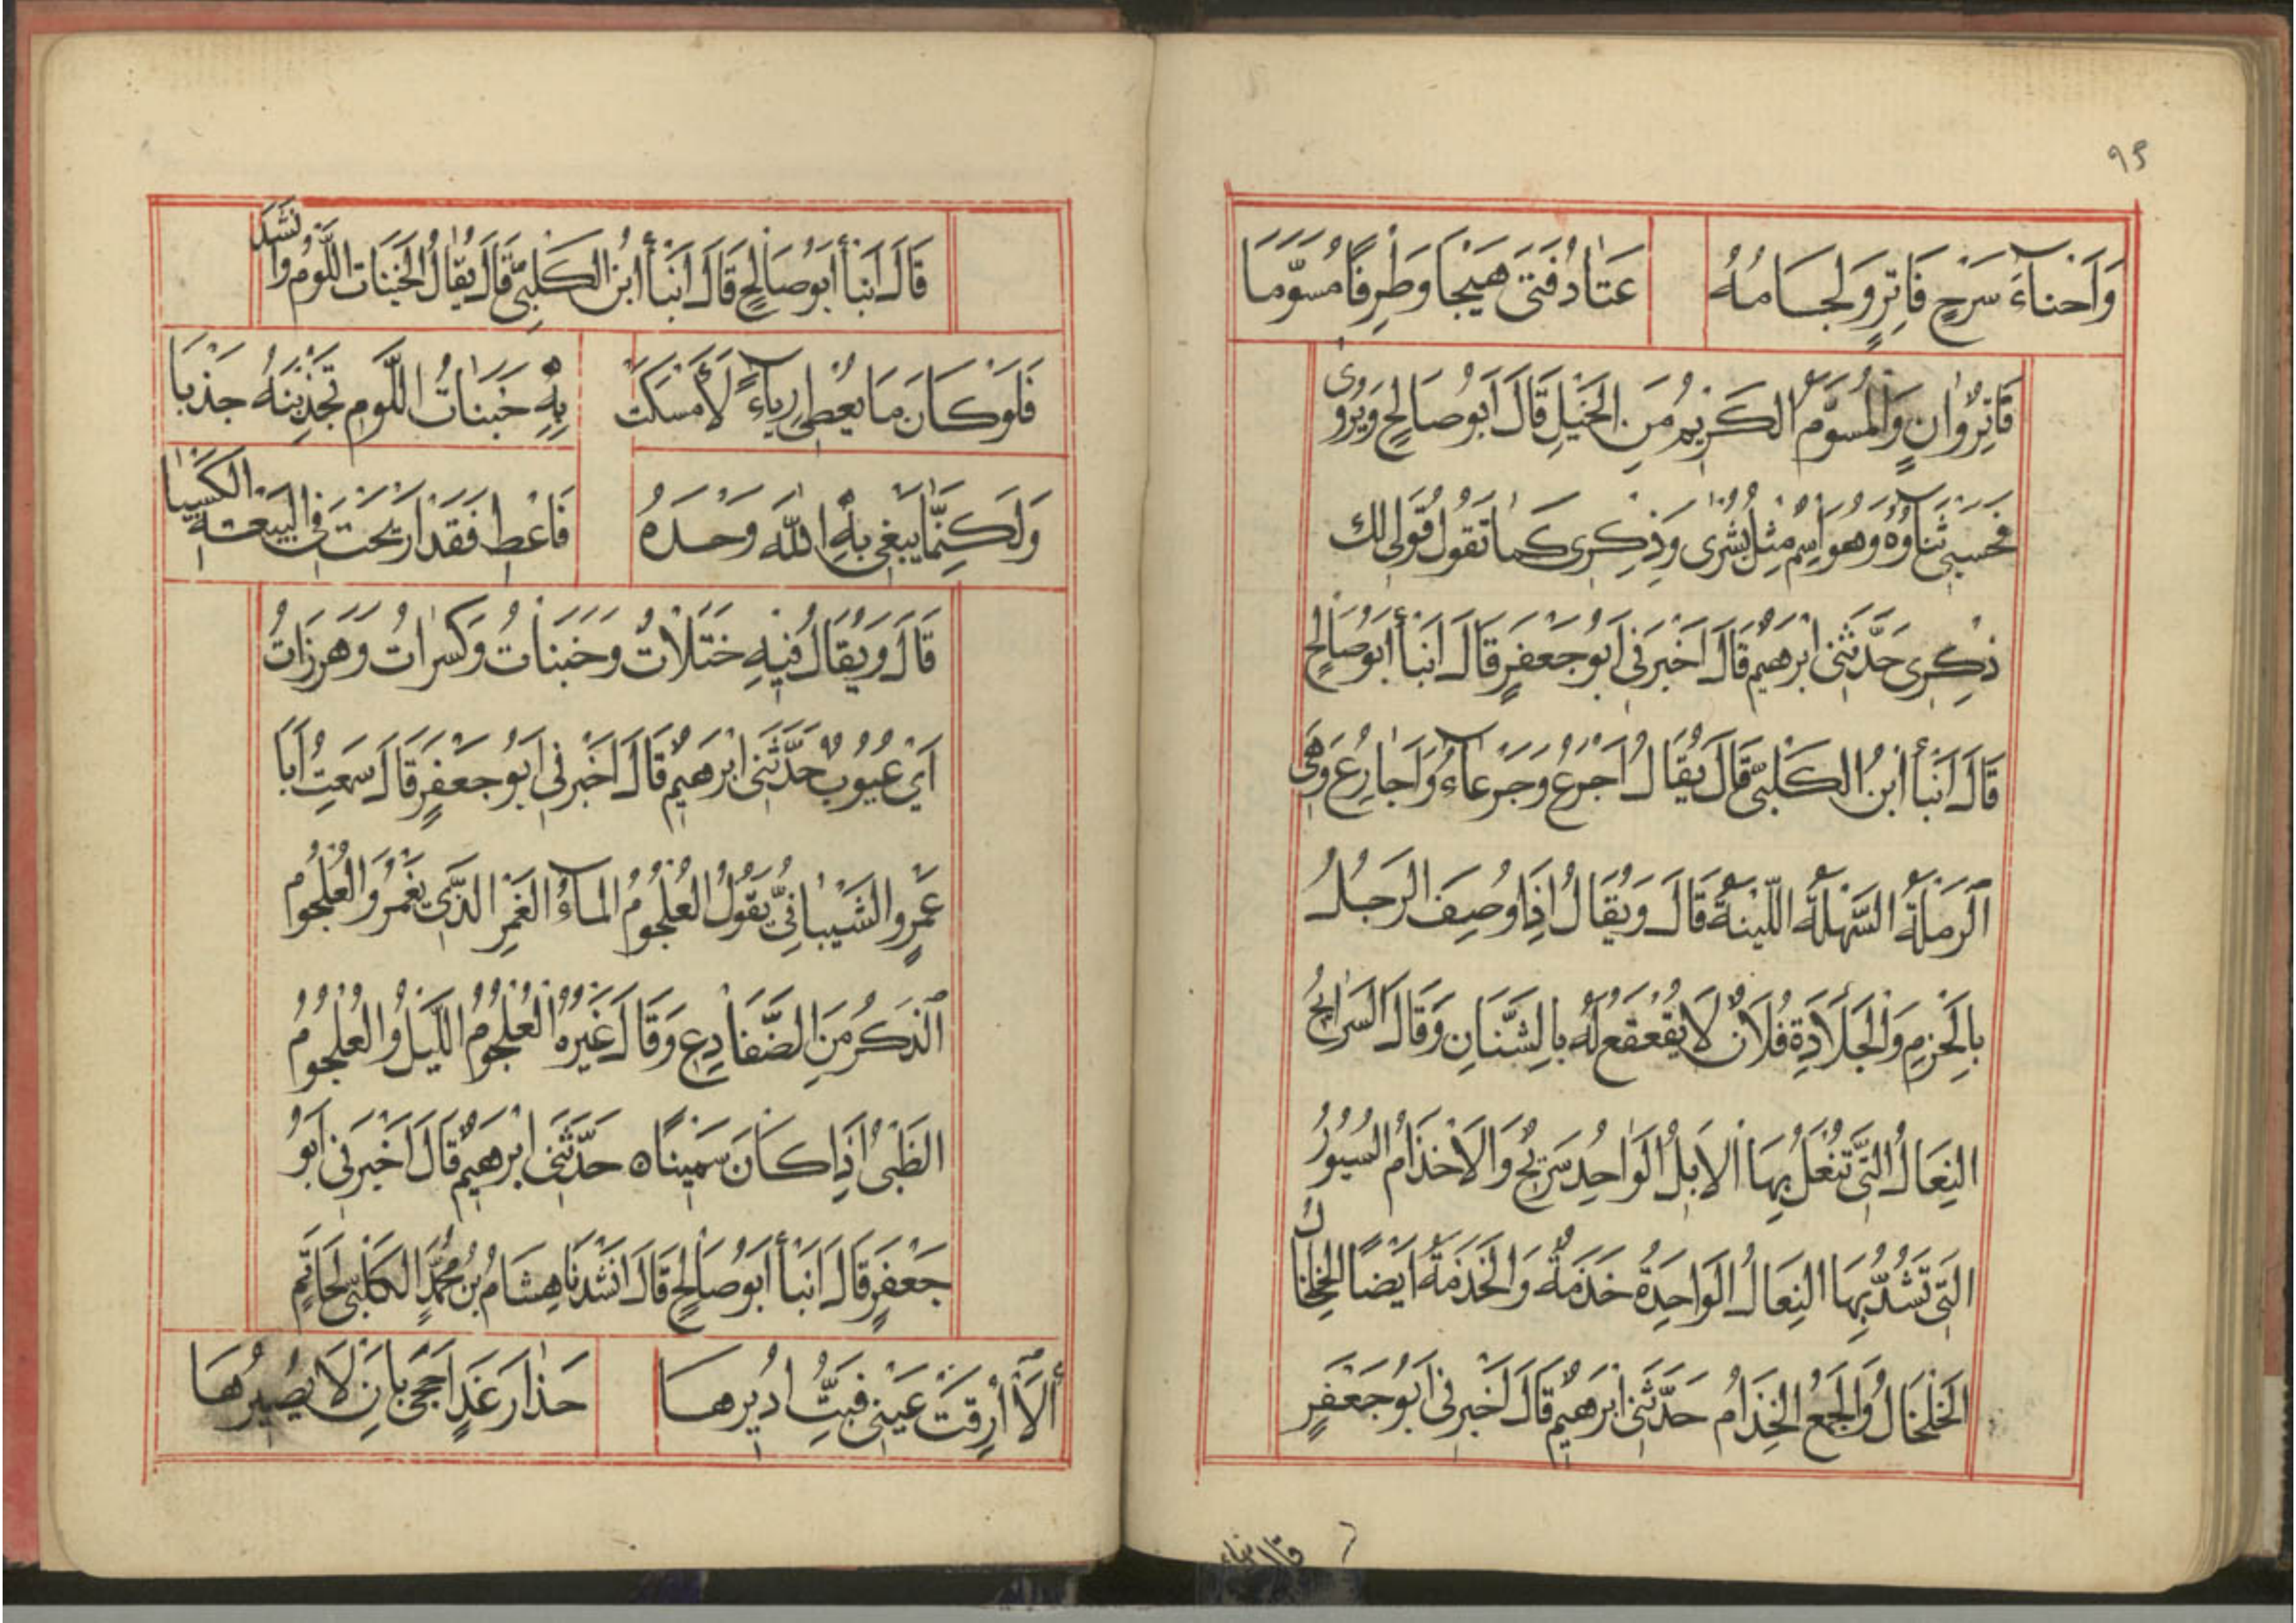 ٩٥
وَاَحناءَ سَرْجٍ فَاتِرٍ وَلجَامُهُ عَتادُ فَتىً هَيْجَا وَطِرفًا مُسَوَّمَا
قَاتِرٌ وانٍ وَالمُسوَّمُ الكَريمُ مِنَ الخَيْلِ قَالَ اَبُو صَالحٍ وَيُرْوى
فحَسْبِى ثَناؤُهُ وَهُوَ اسِمٌ مِثْلُ بُشْرٰى وَذِكرى كَمَا تَقُولُ قَوْلِى لك
ذِكرى حَدَّثَنِى ابْرَهيمُ قَالَ اَخْبَرَنى اَبُو جَعْفَرٍ قَالَ انبأ اَبُو صَالحٍ
قَالَ اَنبأ ابنُ الكَلْبِىِّ قَالَ يُقَالُ اَجْرَعُ وَجَرْعَاءُ وَاَجَارِعُ وَهِىَ
اَلرَمْلَةُ السَّهْلَةُ اللَّيِّنَةُ قَالَ وَيُقَالُ اِذَا وُصِفَ الرَجُلُ
بِالحَزمِ وَالجَلَادَةِ فُلَانٌ لَا يُقَعْقَعُ لَهُ بالشَّنَانِ وَقَالَ السَرَايحُ
النِعَالُ التِّى تُنْعَلُ بِهَا الاِبلُ الوَاحِدُ سَرِيحٌ وَالاَخْذَامُ السُيُورُ
التِّى تُشَدُّ بِهَا النِعَالُ الوَاحِدَةُ خَذَمَةٌ وَالخَذَمَةُ اَيْضًا الخِلخَالُ
الخَلْخَالُ وَالجَمْعُ الخِذَامُ حَدَّثَنِى ابْرَهيمُ قَالَ اَخْبَرَنى اَبُو جَعْفَرٍ
قال انباء
قَالَ انبأ اَبُو صَالحٍ قَالَ اَنبأ ابنُ الكَلْبِىِّ قَالَ يُقَالُ الخَبَنَات اللَّوْمُ وَانشَدَ
فَلَوْ كَانَ مَا يُعْطِى رِياءً لَأَمْسَكَتْ بِهِ خَبَنَاتُ اللَّومِ تَجْذِبُهُ جَذبَا
وَلَكِنَّمَا يَبْغِى بِهِ اللّٰهَ وَحْدَهُ فَاَعْطِ فَقَدْ اَربَحْتَ فِى البَيْعَةِ الكَسْبَا
قَالَ وَيُقَالُ فيهِ خَتَلَاتٌ وَخَبَنَاتٌ وَكَسَرٰاتٌ وَهَزَرَاتٌ
اَىْ عُيُوبٌ حَدَّثَنِى ابْرَهيمُ قَالَ اَخْبَرَنى اَبُو جَعْفَرٍ قَالَ سَمعتُ اَبَا
عَمْرٍو الشَيْبَانِىَّ يَقُولُ العُلْجُومُ المَاءُ الغَمْرُ الذَّىِ يَغْمُرُ وَالعُلْجُومُ
اَلذَكَرُ مِنَ الضَّفَادِعِ وَقَالَ غَيْرُهُ العُلْجُومُ اللَّيلُ وَالعُلْجُومُ
الظَبْىُ اِذَا كَانَ سَمْينًا ه حَدَّثَنِى ابْرَهيمُ قَالَ اَخْبَرَنى اَبُو
جَعْفَرٍ قَالَ انبأ اَبُو صَالحٍ قَالَ انشَدَنَا هِشَامُ بنُ مُحَمَّدٍ الكَلْبِىُّ لِحَاتمٍ
أَلَا أَرِقَتْ عَيْنِى فَبِتُّ اُدِيرهَا حَذارَ غَدٍ اَحْجى بأن لَا يَضِيرُهَا